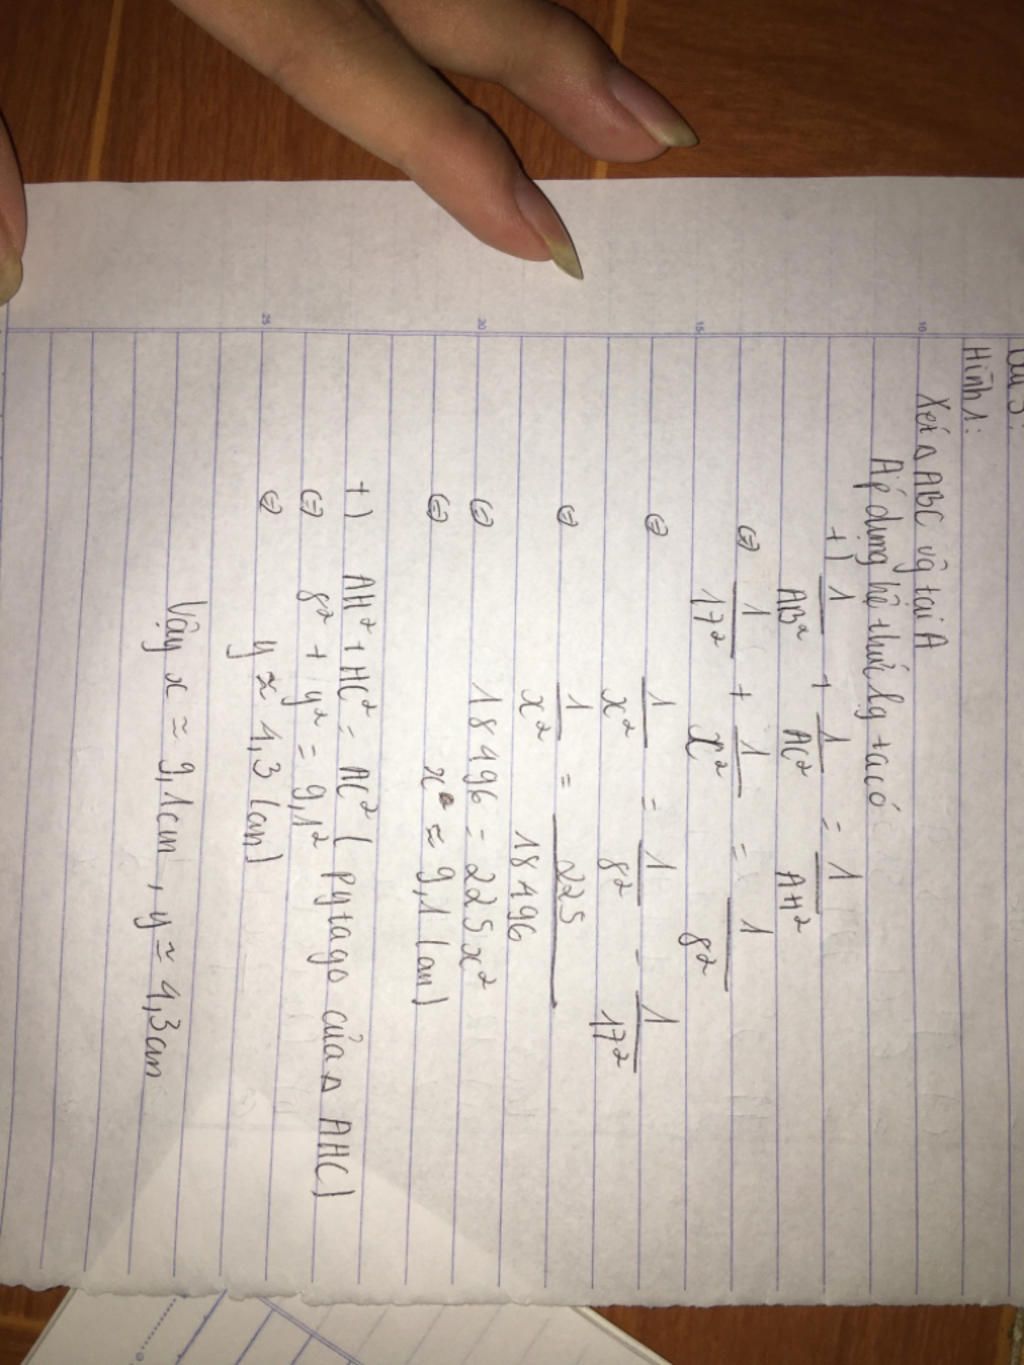 Hình 1:
Xét Δ ABC vg tại A
Áp dụng hệ thức lg ta có
+) 1/AB² + 1/AC² = 1/AH²
⇔ 1/17² + 1/x² = 1/8²
⇔ 1/x² = 1/8² - 1/17²
⇔ 1/x² = 225/18496
⇔ 18496 = 225x²
⇔ x ≈ 9,1 (cm)
+) AH² + HC² = AC² ( Pytago của Δ AHC)
⇔ 8² + y² = 9,1²
⇔ y ≈ 4,3 (cm)
Vậy x ≈ 9,1cm , y ≈ 4,3cm
10
15
20
25